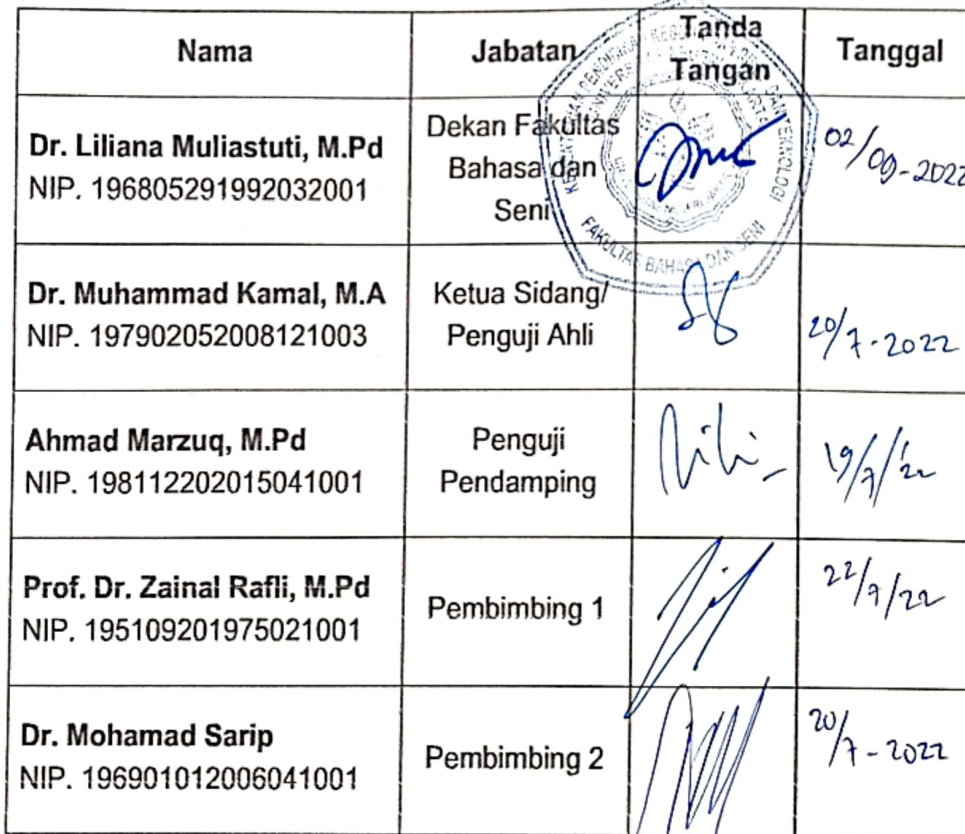 Nama Jabatan Tanda Tangan Tanggal
Dr. Liliana Muliastuti, M.Pd
NIP. 196805291992032001
Dekan Fakultas
Bahasa dan
Seni
02/09-2022
FAKULTAS BAHASA DAN SENI
Dr. Muhammad Kamal, M.A
NIP. 197902052008121003
Ketua Sidang/
Penguji Ahli
20/7-2022
Ahmad Marzuq, M.Pd
NIP. 198112202015041001
Penguji
Pendamping
19/7/22
Prof. Dr. Zainal Rafli, M.Pd
NIP. 195109201975021001
Pembimbing 1
22/7/22
Dr. Mohamad Sarip
NIP. 196901012006041001
Pembimbing 2
20/7-2022